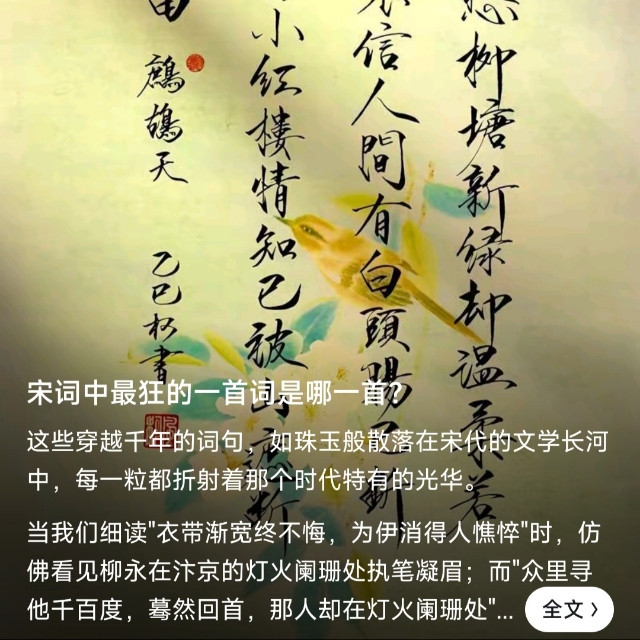 愁柳塘新绿却温柔若
不信人間有白頭腸已斷
小紅樓情知已被山遮斷
由 鷓鴣天 乙巳 書
宋词中最狂的一首词是哪一首？
这些穿越千年的词句，如珠玉般散落在宋代的文学长河
中，每一粒都折射着那个时代特有的光华。
当我们细读"衣带渐宽终不悔，为伊消得人憔悴"时，仿
佛看见柳永在汴京的灯火阑珊处执笔凝眉；而"众里寻
他千百度，蓦然回首，那人却在灯火阑珊处"... 全文 >